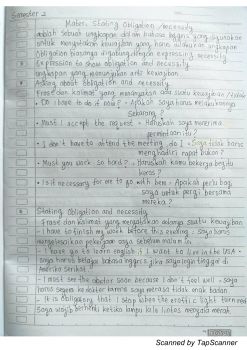 Semester 2
Materi Stating Obligation / necessity
adalah sebuah ungkapan dalam bahasa Inggris yang digunakan
untuk mengatakan kewajiban yang harus dilakukan ungkapan
Obligation biasanya digabung dengan expressing necessity
Expression to show obligation and necessity
ungkapan yang menunjukan arti kewajiban
Asking about obligation and necessity
Frasa dan kalimat yang menanyakan ada suatu kewajiban / tidak
• Do I have to do it now? • Apakah saya harus melakukannya
Sekarang?
• Must I accept the request • Haruskah saya menerima
permintaan itu?
• I don't have to attend the meeting do I. Saya tidak harus
menghadiri rapat bukan?
• Must you work so hard?. Haruskah kamu bekerja begitu
keras?
• Is it necessary for me to go with them • Apakah perlu bagi
saya untuk pergi bersama
mereka?
Stating Obligation and necessity
Frasa dan kalimat yang menyatakan adanya suatu kewajiban
- I have to finish my work before this evening. saya harus
menyelesaikan pekerjaan saya sebelum malam ini
- I have got to learn english if I want to live in the USA -
saya harus belajar bahasa inggris jika saya ingin tinggal di
Amerika serikat
- I must see the doctor soon because I don't feel well - saya
harus segera ke dokter karena saya merasa tidak enak badan
- It is obligatory that I stop when the traffic light turn red
saya wajib berhenti ketika lampu lalu lintas menyala merah
Scanned by TapScanner